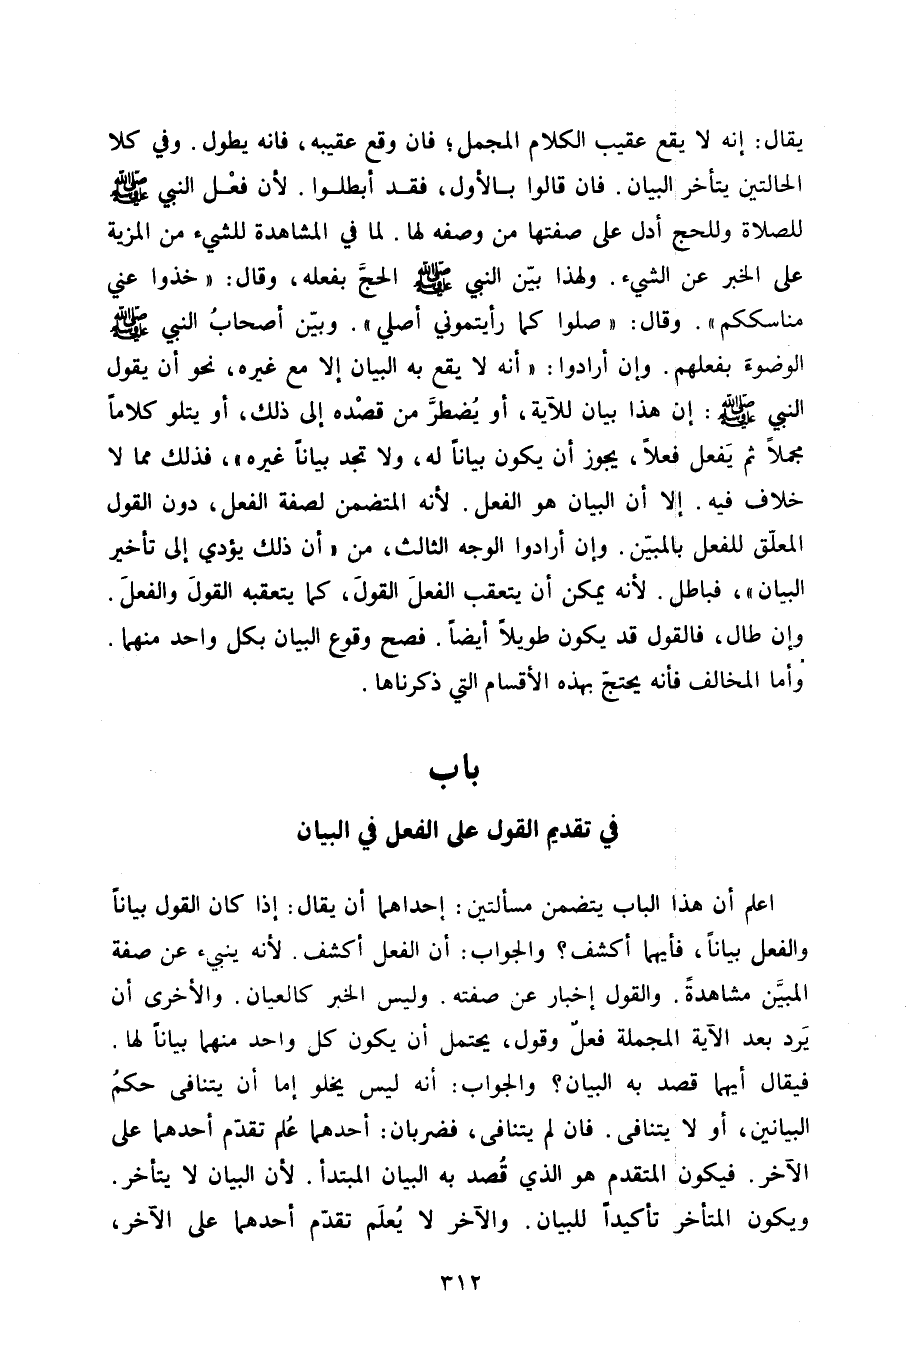 يقال: إنه لا يقع عقيب الكلام المجمل؛ فان وقع عقيبه، فانه يطول. وفي كلا
الحالتين يتأخر البيان. فان قالوا بـالأول، فقـد أبطلـوا. لأن فعْـل النبي ﷺ
للصلاة وللحج أدل على صفتها من وصفه لها. لما في المشاهدة للشيء من المزية
على الخبر عن الشيء. ولهذا بيّن النبي ﷺ الحجَّ بفعله، وقال: « خذوا عني
مناسككم». وقال: « صلوا كما رأيتموني أصلي». وبيّن أصحابُ النبي ﷺ
الوضوءَ بفعلهم. وإن أرادوا: « أنه لا يقع به البيان إلا مع غيره، نحو أن يقول
النبي ﷺ : إن هذا بيان للآية، أو يُضطرَّ من قصْده إلى ذلك، أو يتلو كلاماً
مجملاً ثم يَفعل فعلاً، يجوز أن يكون بياناً له، ولا تجد بياناً غيره»، فذلك مما لا
خلاف فيه. إلا أن البيان هو الفعل. لأنه المتضمن لصفة الفعل، دون القول
المعلّق للفعل بالمبيّن. وإن أرادوا الوجه الثالث، من « أن ذلك يؤدي إلى تأخير
البيان»، فباطل. لأنه يمكن أن يتعقب الفعلَ القولَ، كما يتعقبه القولَ والفعلَ.
وإن طال، فالقول قد يكون طويلاً أيضاً. فصح وقوع البيان بكل واحد منهما.
وأما المخالف فأنه يحتجّ بهذه الأقسام التي ذكرناها.
باب
في تقديم القول على الفعل في البيان
اعلم أن هذا الباب يتضمن مسألتين: إحداهما أن يقال: إذا كان القول بياناً
والفعل بياناً، فأيهما أكشف؟ والجواب: أن الفعل أكشف. لأنه ينبيء عن صفة
المبيَّن مشاهدةً. والقول إخبار عن صفته. وليس الخبر كالعيان. والأخرى أن
يَرد بعد الآية المجملة فعلٌ وقول، يحتمل أن يكون كل واحد منهما بياناً لها.
فيقال أيهما قصد به البيان؟ والجواب: أنه ليس يخلو إما أن يتنافى حكمُ
البيانين، أو لا يتنافى. فان لم يتنافى، فضربان: أحدهما عُلم تقدّم أحدهما على
الآخر. فيكون المتقدم هو الذي قُصد به البيان المبتدأ. لأن البيان لا يتأخر.
ويكون المتأخر تأكيداً للبيان. والآخر لا يُعلَم تقدّم أحدهما على الآخر،
٣١٢